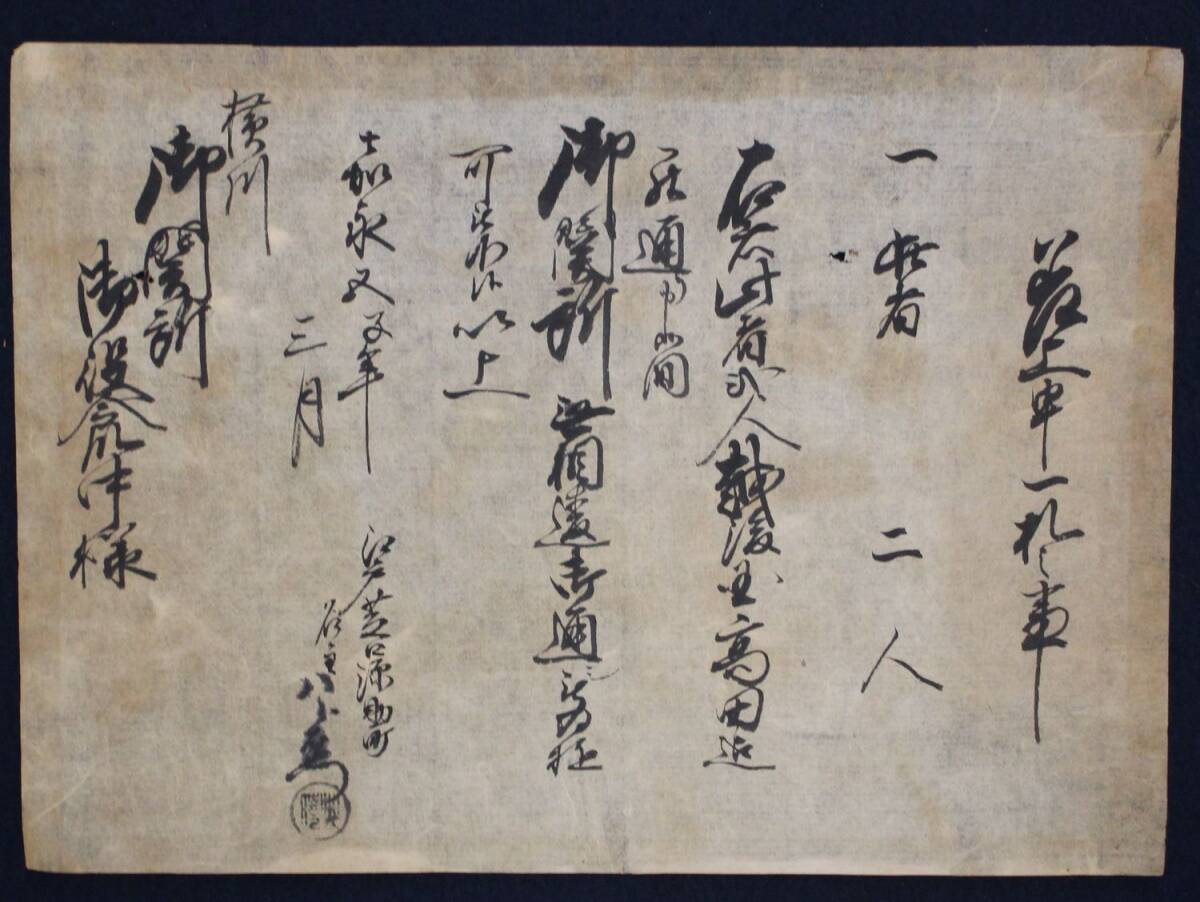 差上申一札之事
一 若者 二人
右者此者共弐人越後国高田迄
罷通申候間
御関所無相違御通被為遊
可被下候以上
嘉永五子年
三月
江戸芝口源助町
家主 八兵衛
横川
御関所
御役人衆中様